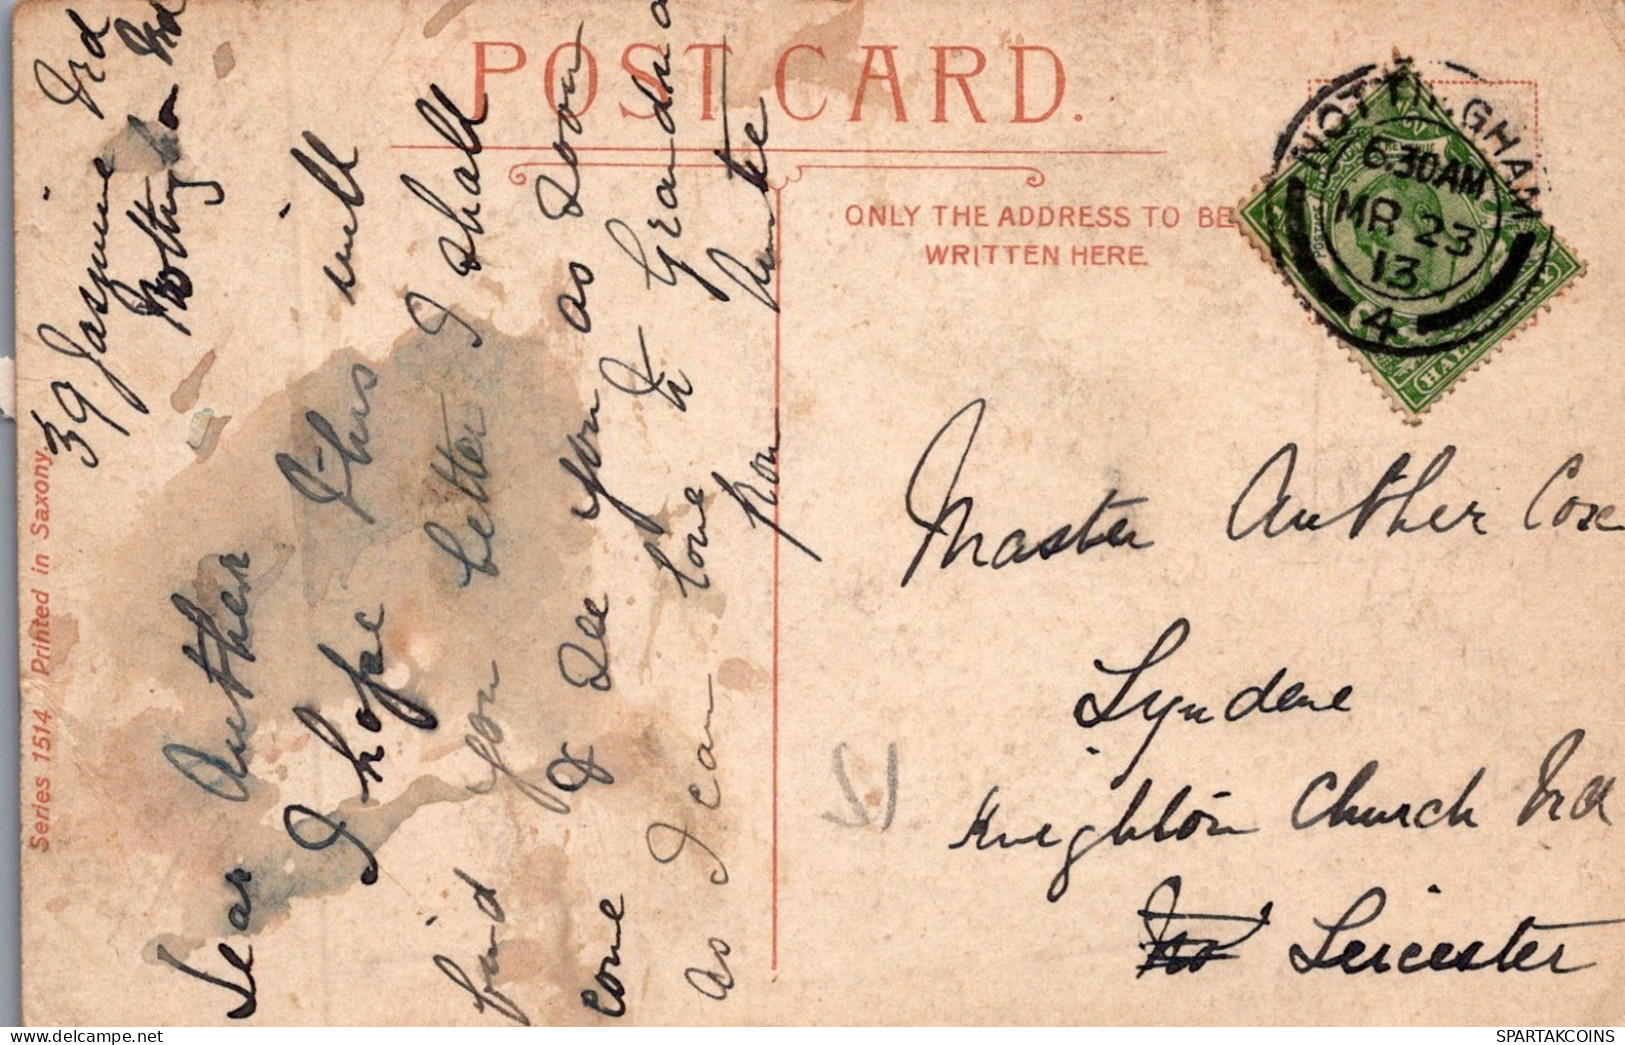 POST CARD.
ONLY THE ADDRESS TO BE
WRITTEN HERE
NOTTINGHAM
6.30AM
MR 23
13
4
Series 1514 Printed in Saxony.
39 Jasmine Rd
Dear Auther
I hope this will
find you better I shall
come & see you as soon
as I can love to Grandma
from Auntie
Master Auther Cox
Lyndene
Knighton Church Rd
Leicester
SPARTAKCOINS